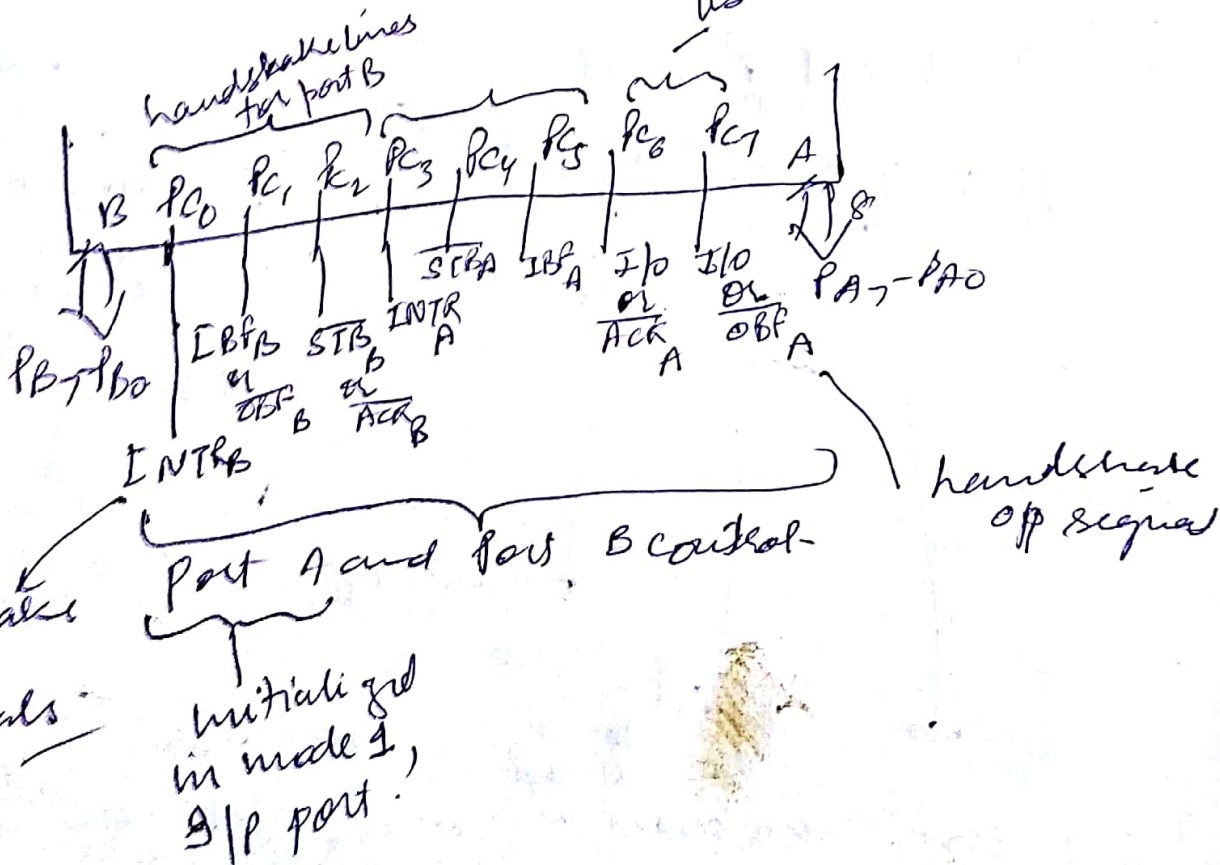 handshake lines
for port B
B PC0 PC1 PC2 PC3 PC4 PC5 PC6 PC7 A 8
PB7-PB0
IBFB
or
OBF B
STB B
or
ACK B
INTR A
STBA
IBF A
I/O
or
ACK A
I/O
or
OBF A
PA7-PA0
INTRB
handshake
o/p signal
Port A and Port B control
initialized
in mode 1,
I/P port.